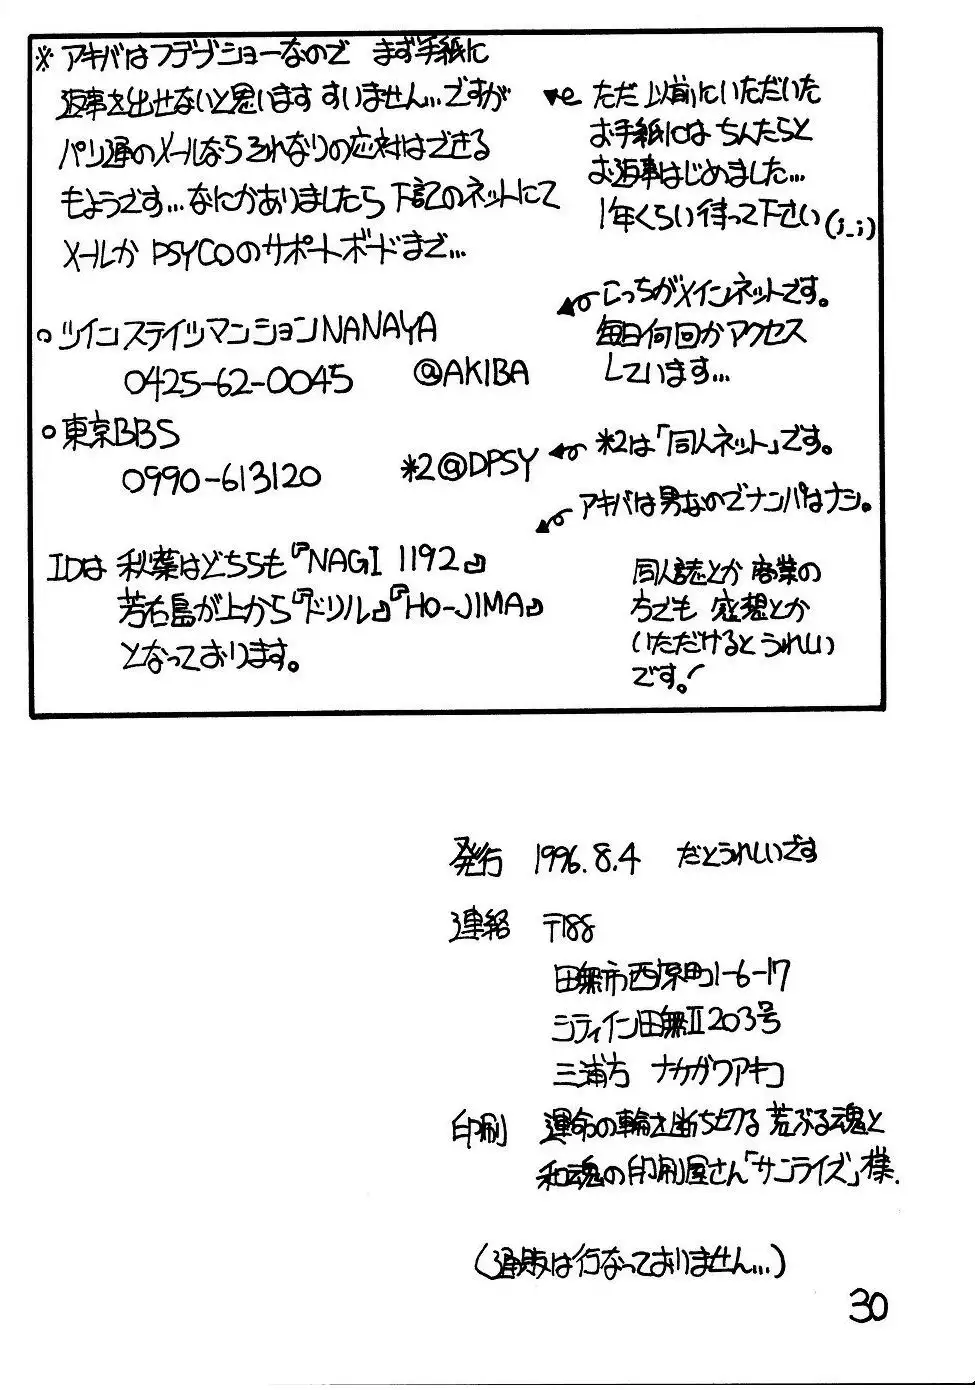 ※アキバはフデブショーなので まず手紙に
返事を出せないと思います すいません…ですが
パソ通のメールなら それなりの応対はできる
もようです…なにかありましたら 下記のネットにて
メールか PSYCOのサポートボードまで…
ただ 以前にいただいた
お手紙には ちんたらと
お返事はじめました…
1年くらい 待って下さい(;_;)
○ツインステイツマンションNANAYA
0425-62-0045 @AKIBA
こっちがメインネットです。
毎日何回かアクセス
しています…
○東京BBS
0990-613120 *2@DPSY
*2は「同人ネット」です。
アキバは男なのでナンパはナシ。
IDは 秋葉はどちらも『NAGI 1192』
芳右島が上から『ドリル』『HO-JIMA』
となっております。
同人誌とか 商業の
方でも 感想とか
いただけると うれしい
です。!
発行 1996.8.4 だとうれしいです
連絡 〒188
田無市西原町1-6-17
シティイン田無Ⅱ203号
三浦方 ナカガワアキコ
印刷 運命の輪を断ち切る 荒ぶる魂と
和魂の印刷屋さん「サンライズ」様.
(通販は行なっておりません…)
30